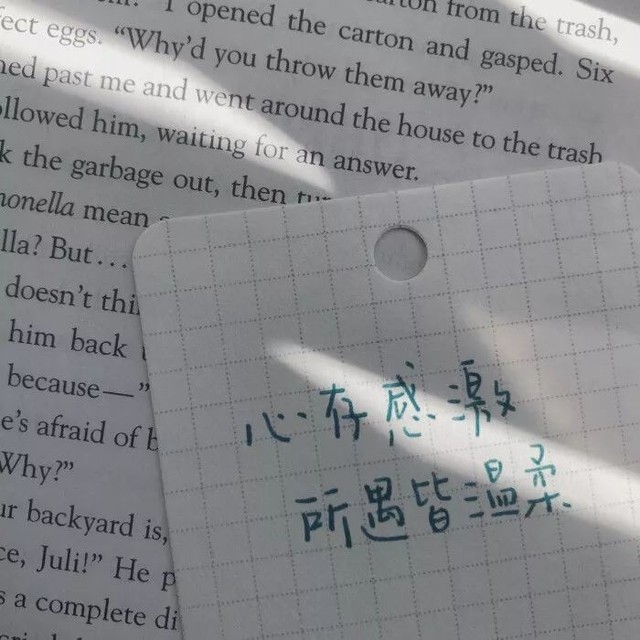 carton from the trash,
I opened the carton and gasped. Six
fect eggs. “Why’d you throw them away?”
past me and went around the house to the trash
ollowed him, waiting for an answer.
k the garbage out, then
monella mean
lla? But…
doesn’t thi
him back
because—”
e’s afraid of b
Why?”
ur backyard is,
ce, Juli!” He p
s a complete di
心存感激
所遇皆温柔